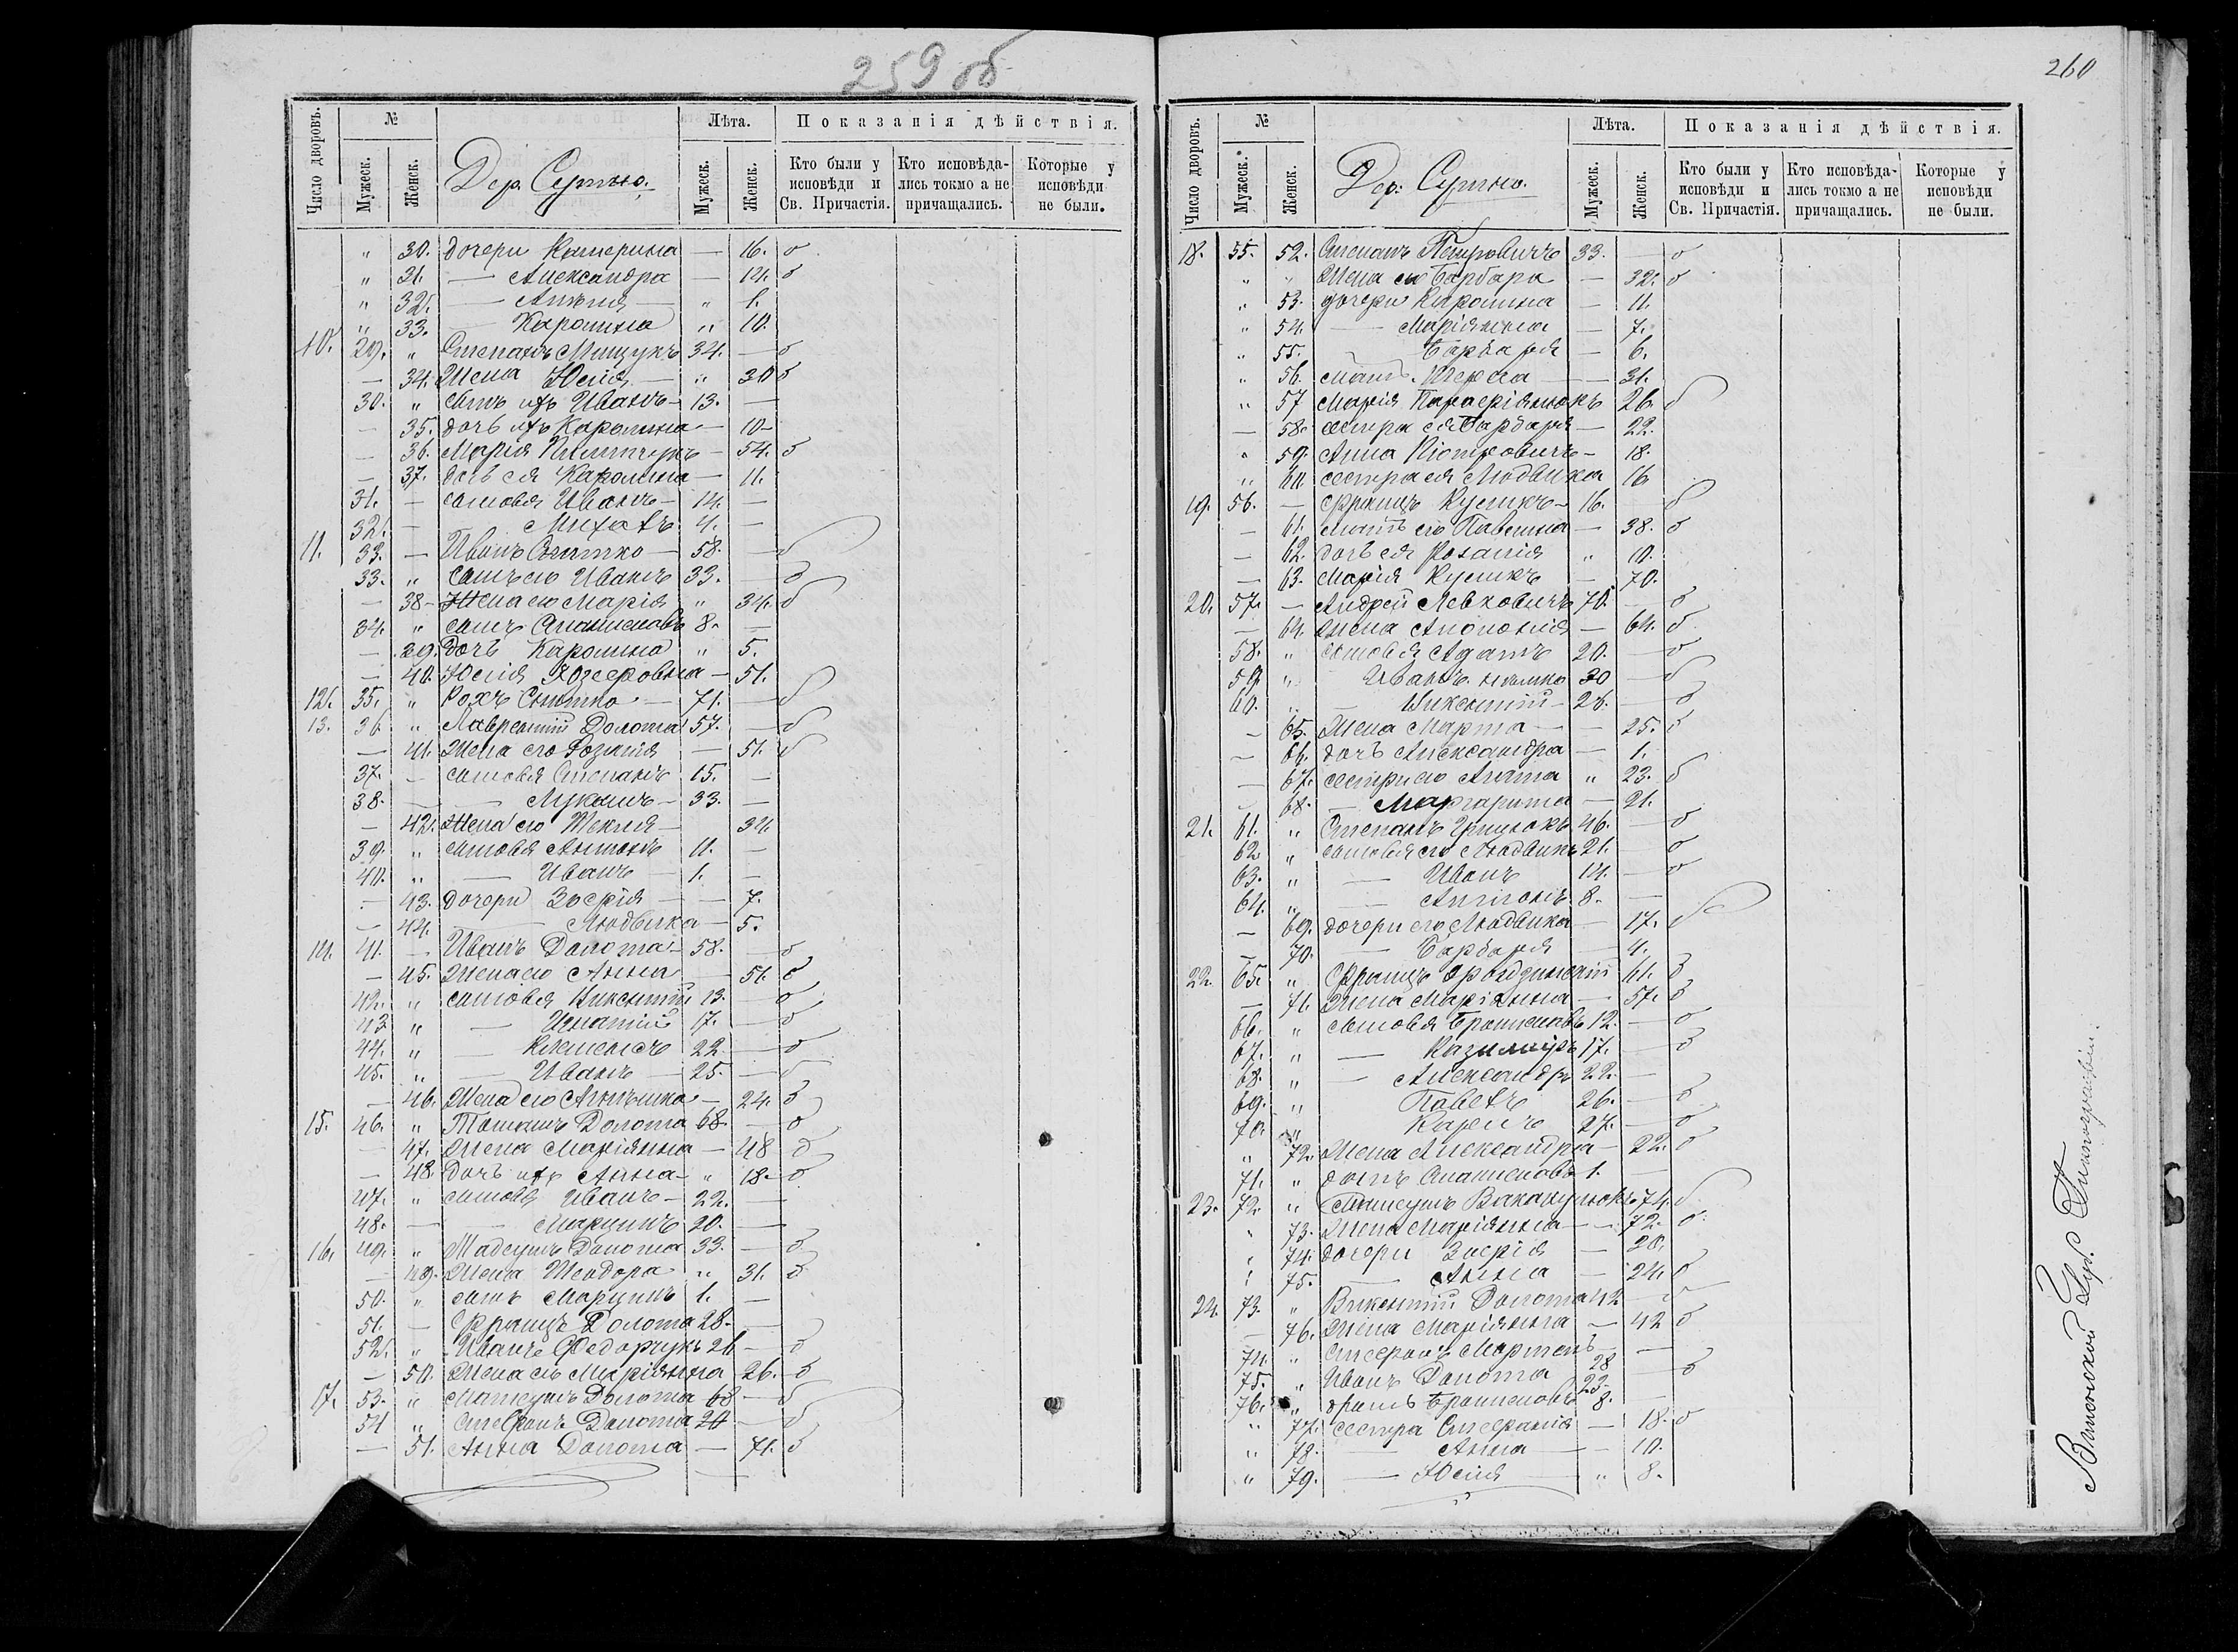 259 об
Число дворовъ. № Лѣта. Показанія дѣйствія.
Мужеск. Женск. Дер. Сутно. Мужеск. Женск. Кто были у исповѣди и Св. Причастія. Кто исповѣда-лись токмо а не причащались. Которые у исповѣди не были.
" 30. дочери Катерина — 16. о
" 31. — Александра — 14. о
" 32. — — " 1.
" 33. — Каролина " 10.
10. 29. " Степанъ Мищукъ 34. — о
— 34. Жена Юлія — " 30 о
30. " сынъ ихъ Иванъ — 13. —
— 35. дочь ихъ Каролина — 10 —
— 36. Марія — 54. о
— 37. дочь ея Каролина — 11.
31. — сыновья Иванъ — 14. —
32. — Михалъ 4. —
11. 33. — Иванъ — 58. — о
33. " сынъ его Иванъ 33. — о
— 38 — Жена его Марія " 34. о
34. " сынъ Станиславъ 8. —
— 39. Дочь Каролина " 5.
— 40. Юлія Юзефовна — 51.
12. 35. " Рохъ — 71. — о
13. 36 " Лаврентій Долота 57. — о
— 41. Жена его Розалія — 51. о
37. — сыновья Степанъ 15. —
38. — — Лукашъ — 33. —
— 42. Жена его Текля — 34
39. " сыновья Антонъ 11. —
40. " — Иванъ — 1. —
— 43. дочери Зофія — — 7.
— 44. — Людвика — 5.
14. 41. — Иванъ Долота — 58. — о
— 45. Жена его Анна — 51. о
42. " сыновья Викентій 13. — о
43 " — Игнатій 17. — о
44. " — Клеменсъ 22 — о
45. " — Иванъ — 25. — о
— 46. Жена его — 24. о
15. 46. " Томашъ Долота 68. — о
— 47. Жена Маріянна — 48 о
— 48. Дочь ихъ Анна — " 18. о
47. " сыновья Иванъ — 22. —
48. — — Марцинъ 20. —
16. 49. " Матеушъ Долота 33. — о
— 49. Жена Теодора " 31. о
50. " сынъ Марцинъ 1. —
51. — Францъ Долота 28. —
52. " Иванъ Федорчукъ 26 — о
— 50. Жена его Маріянна 26. о
17. 53. " Матеушъ Долота 68 — о
54 " Стефанъ Долота 24 — о
— 51. Анна Долота — 71. о
260
Число дворовъ. № Лѣта. Показанія дѣйствія.
Мужеск. Женск. Дер: Сутно. Мужеск. Женск. Кто были у исповѣди и Св. Причастія. Кто исповѣда-лись токмо а не причащались. Которые у исповѣди не были.
18. 55. 52. Степанъ Петровичъ 33. — о
" " Жена его Барбара — 32. о
" 53. дочери Каролина — 11.
" 54. — Маріянна — 7.
" 55. Барбара — 6.
" 56. мать Тереса — — 31.
" 57 Марія 26. о
— 58. сестра ея Барбара — 22.
" 59. Анна — 18.
" 60. сестра ея Людвика 16
19. 56. — Францъ Куликъ — 16. — о
— 61. мать его Павлина — 38. о
— 62. дочь ея Розалія " 10.
— 63. Марія Куликъ — 70.
20. 57. — Андрей Левковичъ 70. — о
— 64. Жена Аполонія — 64. о
58. " сыновья Адамъ 20. — о
59 " Иванъ 30 — о
60. " — Викентій — 28. — о
— 65. Жена Марта — — 25. о
— 66. дочь Александра — 1.
— 67. сестры его Агата " 23. о
— 68. — Маргарита — 21.
21. 61. " Степанъ Грицюкъ 46. — о
62 " сыновья его Людвикъ 21. — о
63. " — Иванъ 14. — о
64. " — Антонъ 8. —
— 69. дочери его Людвика — 17. о
— 70. — Барбара — 4.
22. 65. " Францъ 61. о
— 71. Жена Маріянна — 57. о
66. " сыновья Брониславъ 12. — о
67. " — Казиміръ 17. — о
68. " — Александръ 22. —
69. " Павелъ 26. — о
70. " Кароль 27. — о
" 72. Жена Александра — 22. о
71. " Станиславъ 1. —
23. 72. " Матеушъ 74. о
" 73. Жена Маріянна — — 72. о
" 74. дочери Зофія — 28.
" 75. — Анна — 24. о
24. 73. " Викентій Долота 42 — о
— 76. Жена Маріянна — 42 о
74. " Стефанъ 28 —
75. " Иванъ Долота 23. — о
76. " братъ Брониславъ 8. —
" 77. сестра Стефанія — 18. о
" 78. — Анна — — 10.
" 79. — Юлія — " 8.